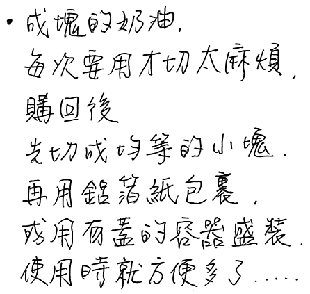 ・成塊的奶油,
每次要用才切太麻煩,
購回後
先切成均等的小塊.
再用鋁箔紙包裹,
或用有蓋的容器盛裝.
使用時就方便多了.....